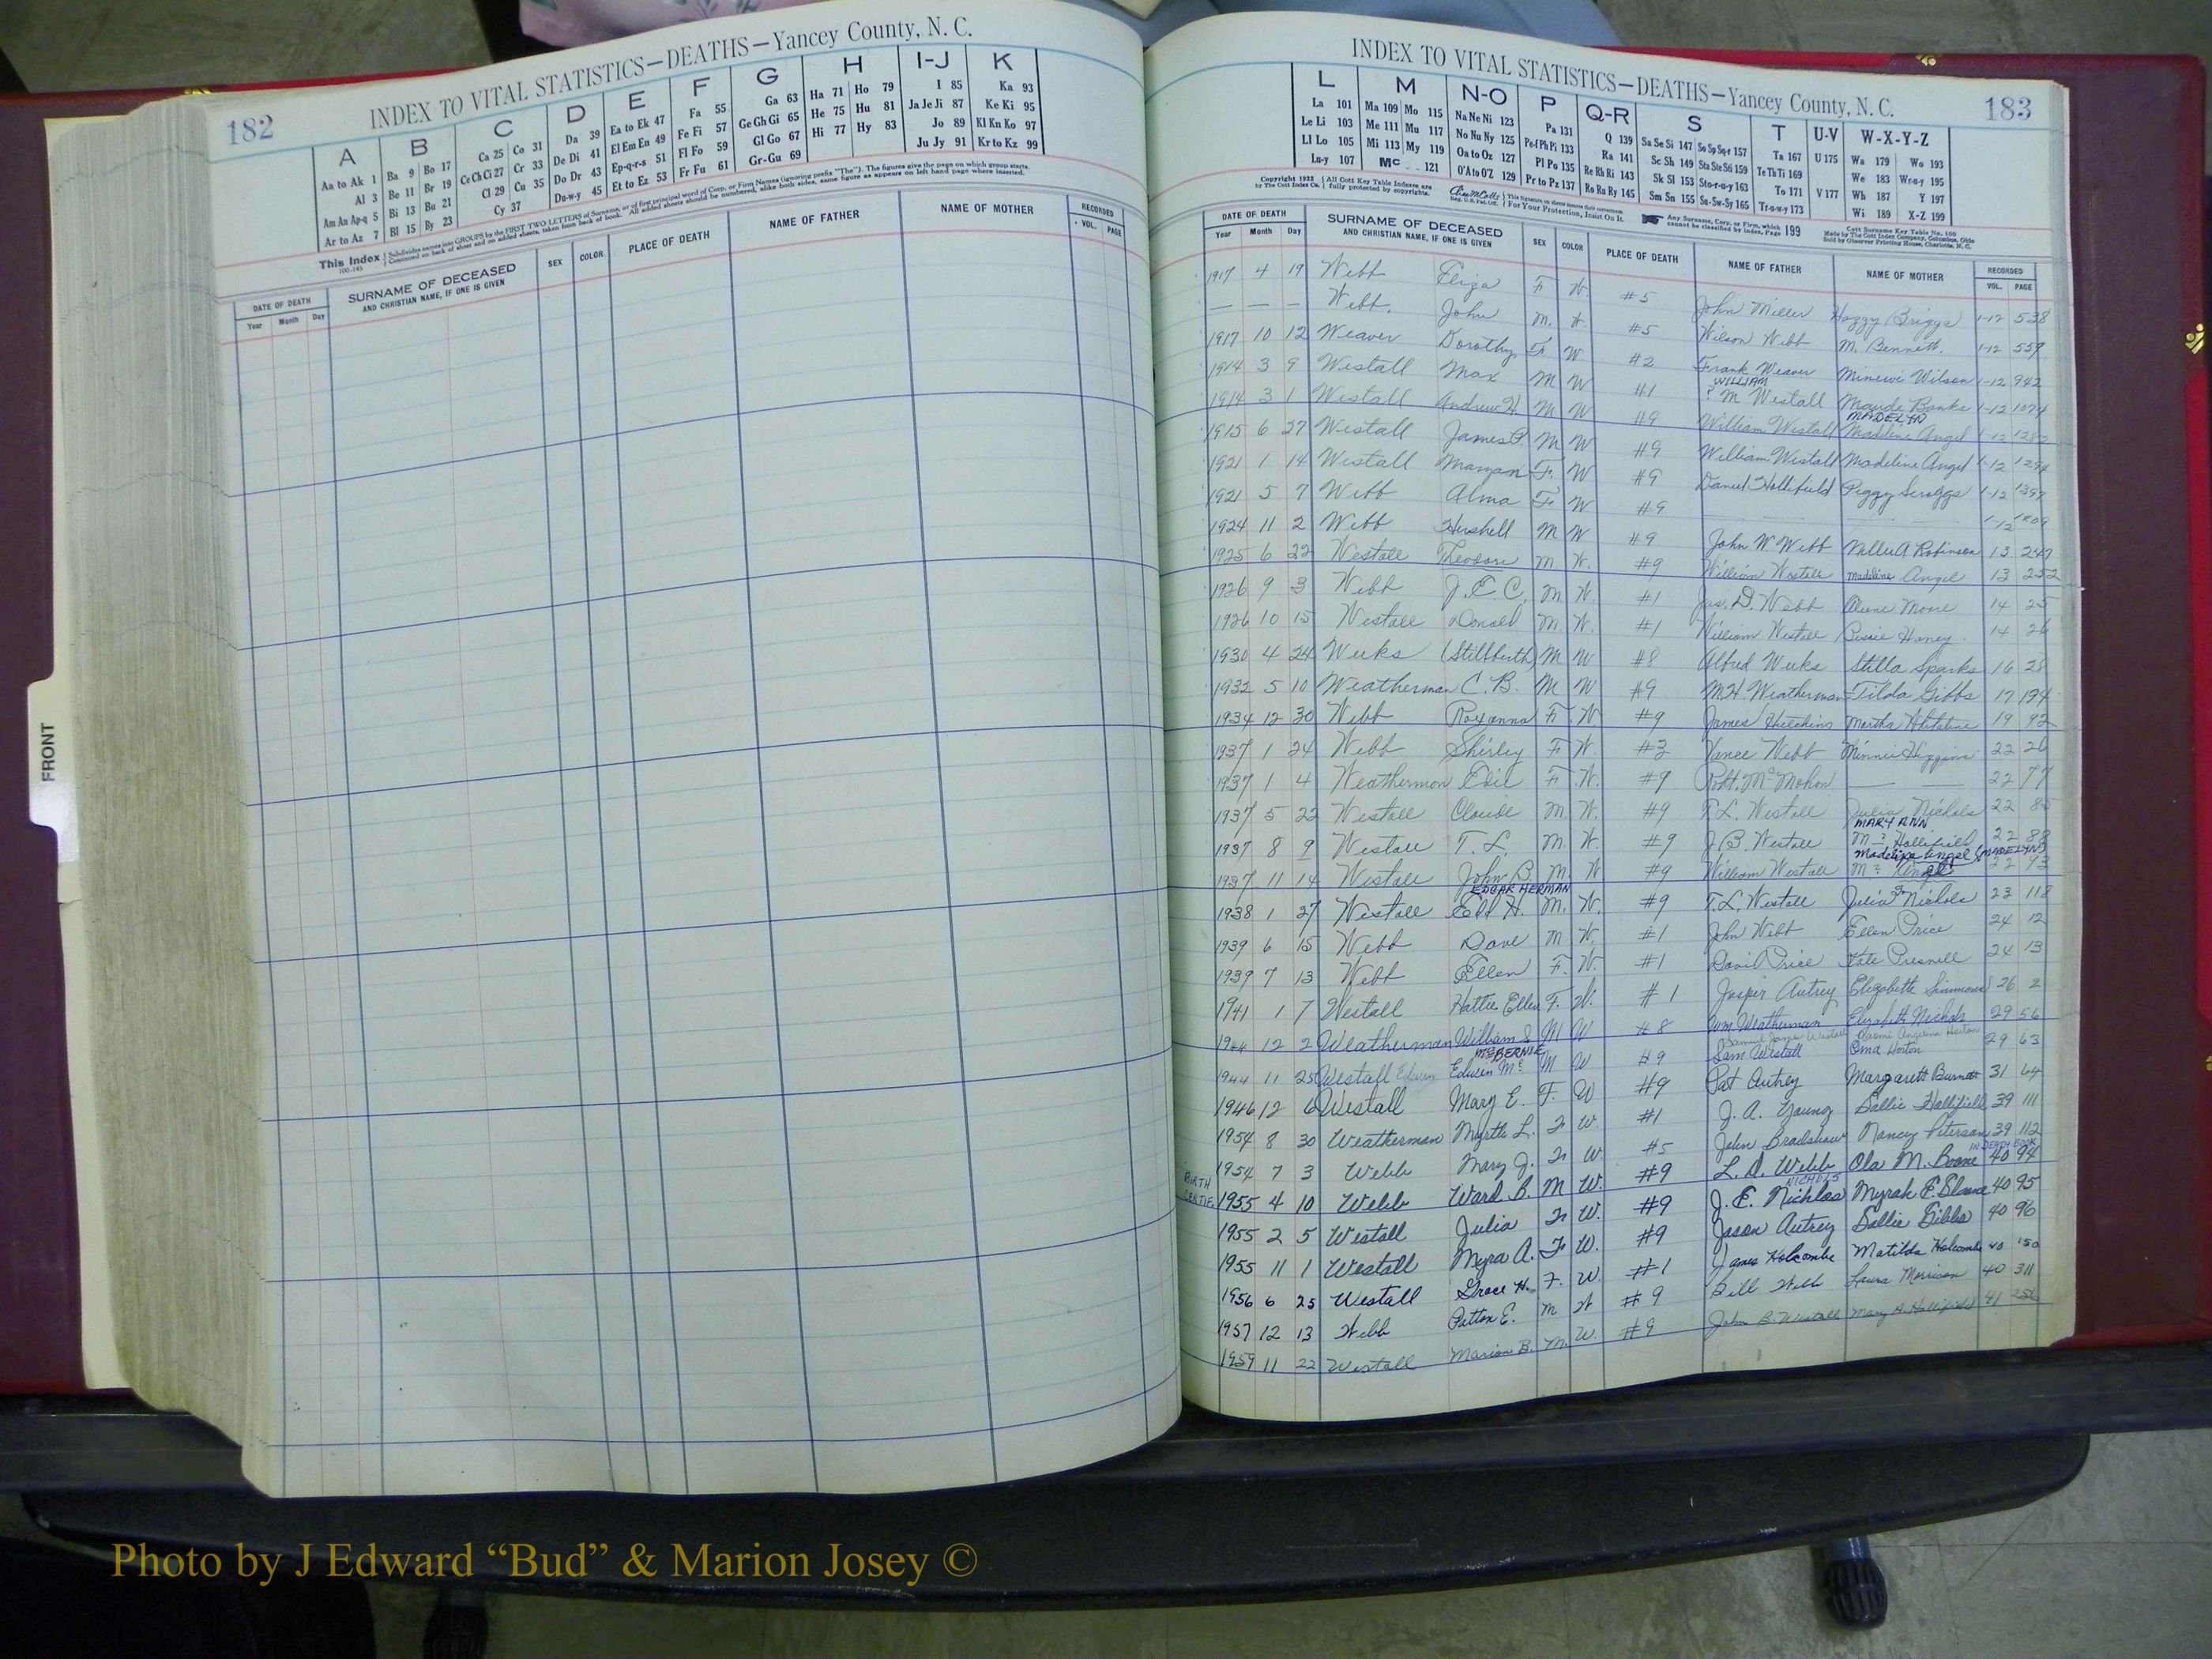 182
INDEX TO VITAL STATISTICS—DEATHS—Yancey County, N. C.
A B C D E F G H I-J K
Aa to Ak 1 Ba 9 Bo 17 Ca 25 Co 31 Da 39 Ea to Ek 47 Fa 55 Ga 63 Ha 71 Ho 79 I 85 Ka 93
Al 3 Be 11 Br 19 Ce Ch Ci 27 Cr 33 De Di 41 El Em En 49 Fe Fi 57 Ge Gh Gi 65 He 75 Hu 81 Ja Je Ji 87 Ke Ki 95
Am An Ap-q 5 Bi 13 Bu 21 Cl 29 Cu 35 Do Dr 43 Ep-q-r-s 51 Fl Fo 59 Gl Go 67 Hi 77 Hy 83 Jo 89 Kl Kn Ko 97
Ar to Az 7 Bl 15 By 23 Cy 37 Du-w-y 45 Et to Ez 53 Fr Fu 61 Gr-Gu 69 Ju Jy 91 Kr to Kz 99
This Index Subdivides names into GROUPS by the FIRST TWO LETTERS of Surname, or of first principal word of Corp. or Firm Names (ignoring prefix "The"). The figures give the page on which group starts.
Continued on back of sheet and on added sheets, taken from back of book. All added sheets should be numbered, alike both sides, same figure as appears on left hand page where inserted.
DATE OF DEATH SURNAME OF DECEASED SEX COLOR PLACE OF DEATH NAME OF FATHER NAME OF MOTHER RECORDED
Year Month Day AND CHRISTIAN NAME, IF ONE IS GIVEN VOL. PAGE
FRONT
INDEX TO VITAL STATISTICS—DEATHS—Yancey County, N. C. 183
L M N-O P Q-R S T U-V W-X-Y-Z
La 101 Ma 109 Mo 115 Na Ne Ni 123 Pa 131 Q 139 Sa Se Si 147 So Sp Sq-r 157 Ta 167 U 175 Wa 179 Wo 193
Le Li 103 Me 111 Mu 117 No Nu Ny 125 Pe-f Ph Pi 133 Ra 141 Sc Sh 149 Sta Ste Sti 159 Te Th Ti 169 We 183 Wr-u-y 195
Ll Lo 105 Mi 113 My 119 Oa to Oz 127 Pl Po 135 Re Rh Ri 143 Sk Sl 153 Sto-r-u-y 163 To 171 V 177 Wh 187 Y 197
Lu-y 107 Mc 121 O'A to O'Z 129 Pr to Pz 137 Ro Ru Ry 145 Sm Sn 155 Su-Sw-Sy 165 Tr-u-w-y 173 Wi 189 X-Z 199
Copyright 1932 All Cott Key Table Indexes are
by The Cott Index Co. fully protected by copyrights.
For Your Protection, Insist On It.
Any Surname, Corp. or Firm, which
cannot be classified by index, Page 199
Cott Surname Key Table No. 100
Made by The Cott Index Company, Columbus, Ohio
Sold by Observer Printing House, Charlotte, N. C.
DATE OF DEATH SURNAME OF DECEASED SEX COLOR PLACE OF DEATH NAME OF FATHER NAME OF MOTHER RECORDED
Year Month Day AND CHRISTIAN NAME, IF ONE IS GIVEN VOL. PAGE
1917 4 19 Webb Eliza F W. #5 John Miller Briggs 1-12 538
— — — Webb. John M. W. #5 Wilson Webb M. Bennett. 1-12 559
1917 10 12 Weaver Dorothy F. W #2 Frank Weaver Wilson 1-12 942
1914 3 9 Westall Max M W #1 WILLIAM ? M Westall Maude Banks 1-12 1074
1914 3 1 Westall Andrew H. M W #9 William Westall MADELYN Madeline Angel 1-12
1915 6 27 Westall James P. M W #9 William Westall Madeline Angel 1-12 1294
1921 1 14 Westall F. W #9 Daniel Hollifield Peggy Scroggs 1-12 1397
1921 5 7 Webb Alma F W #9 1-12
1924 11 2 Webb Hershell M W #9 John W Webb Nellie A Robinson 13 247
1925 6 22 Westall Theodore M W. #9 William Westall Madeline Angel 13 252
1926 9 3 Webb J. E. C. M W. #1 Jas. D. Webb Moore 14 25
1926 10 15 Westall Donald M. W. #1 William Westall Bessie Haney. 14 26
1930 4 24 Weeks (Stillbirth) M W #8 Alfred Weeks Stilla Sparks 16 28
1932 5 10 Weatherman C. B. M W #9 M.H. Weatherman Tilda Gibbs 17 194
1934 12 30 Webb Roxanna F W #9 James Martha 19 92
1937 1 24 Webb Shirley F W. #3 Vance Webb Minnie Higgins 22 26
1937 1 4 Weathermon F W. #9 Robt. McMahon — — 22 77
1937 5 22 Westall Claude M. W. #9 T. L. Westall Julia Nichols 22 85
1937 8 9 Westall T. L. M. W. #9 J. B. Westall MARY ANN M— ? Hollifield 22 88
1937 11 14 Westall John B. M. W #9 William Westall Madeline Angel (MADELYN) 22 93
1938 1 27 Westall EDGAR HERMAN Edd H. M. W. #9 T. L. Westall Julia Nichols 23 118
1939 6 15 Webb Dave M W. #1 John Webb Ellen Price 24 12
1939 7 13 Webb Ellen F. W. #1 David Price Kate Presnell 24 13
1941 1 7 Westall Hattie Ellen F. W. #1 Jasper Autrey Elizabeth Simmons 26 2
1944 12 2 Weatherman William S M W #8 Wm Weatherman Elizabeth Nichols 29 56
1944 11 25 Westall Edwin McBERNIE Edwin Mc M W #9 Sam Westall Ema Horton 29 63
1946 12 6 Westall Mary E. F. W #9 Pat Autrey Margarett Burnett 31 64
1954 8 30 Weatherman Myrtle L. F W. #1 J. A. Young Sallie Hallifield 39 111
1954 7 3 Webb Mary J. F W. #5 John Bradshaw Nancy Peterson 39 112
BIRTH CERTIF. 1955 4 10 Webb Ward B. M W. #9 L. D. Webb Ola M. Boone IN DEATH BOOK 40 94
1955 2 5 Westall Julia F W. #9 J. E. NICHOLS Nichlos Myrah E. Sloane 40 95
1955 11 1 Westall Myra A. F W. #9 Jason Autrey Sallie Gibbs 40 96
1956 6 25 Westall Grace H. F. W. #1 James Holcombe Matilda Holcombe 40 150
1957 12 13 Webb Patton E. M W #9 Bill Webb Laura Morrison 40 311
1959 11 22 Westall Marion B. M. W. #9 John B. Westall Mary A. Hollifield 41
Photo by J Edward “Bud” & Marion Josey ©